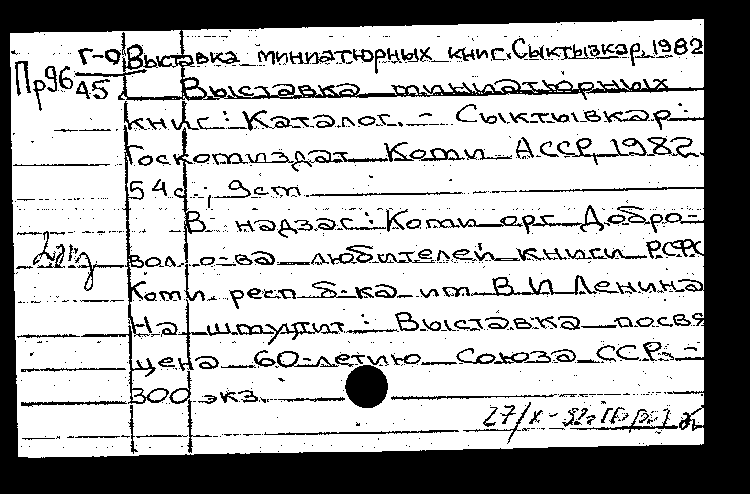 Пр96 Г-0
45
Выставка миниатюрных книг. Сыктывкар, 1982
Выставка миниатюрных
книг: Каталог. - Сыктывкар:
Госкомиздат Коми АССР, 1982.
54с.; 9см
В надзаг: Коми орг. Добро-
вол. о-ва любителей книги РСФС
Коми респ б-ка им В И Ленина
На шмуцтит: Выставка посвя
щена 60-летию Союза ССР. -
300 экз.
27/X-